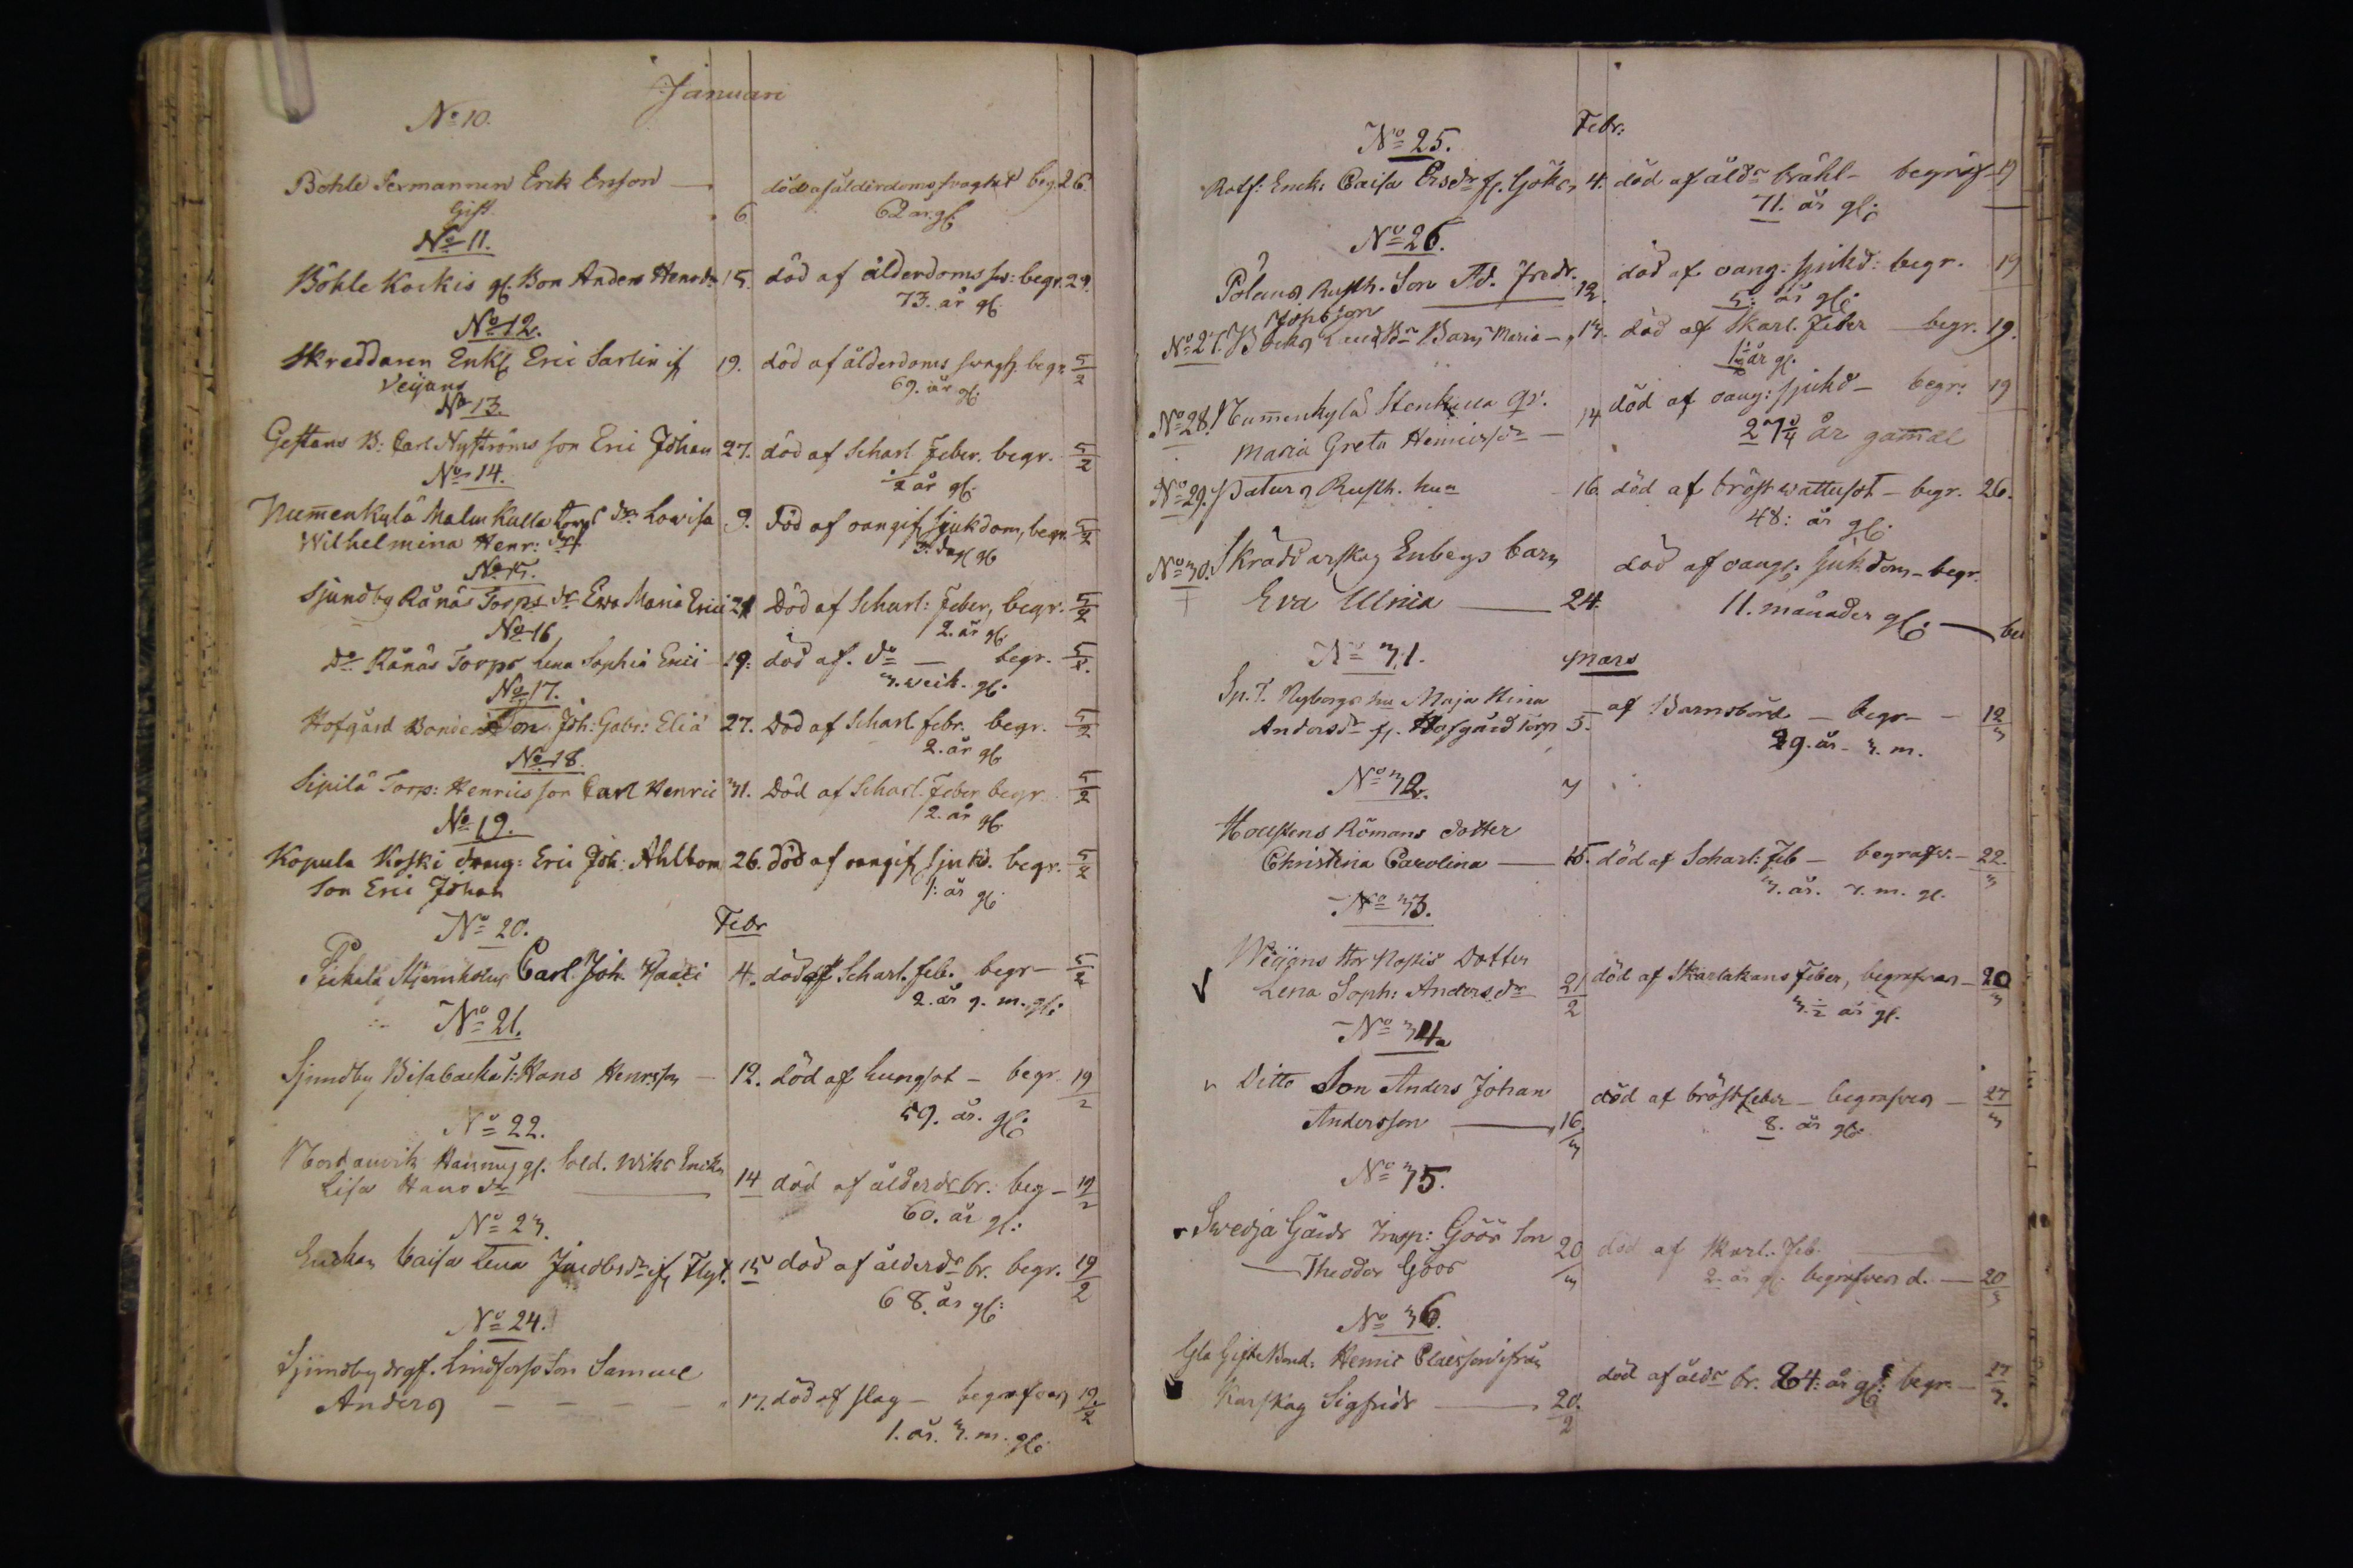 Januari
No 10.
Böhle Sexmannen Erik Ersson
Gift
6
död af ålderdoms svaghet beg. 26.
62 år gl.
No 11.
Böhle Kockis gl. Bon Anders Henrds 15. död af ålderdoms sv: begr. 29.
73. år gl.
No 12.
Skreddaren Enkl Eric Sarlin if 19. död af ålderdoms svagh. begr. 5/2
Veijans
69. år gl.
No 13.
Gestans B: Carl Nyströms son Eric Johan 27. död af Scharl. Feber. begr. 5/2
1/2 år gl.
No 14.
Numenkylä Malm Kulla torps dr. Lovisa 9. Död af oangif. Sjukdom, begr. 5/2
Wilhelmina Henr: dr
3. dag gl
No 15.
Sjundby Rånäs Torps dr Eva Maria Erici 21 Död af Scharl: Feber, begr. 5/2
2. år gl.
No 16
Do Rånäs Torps Lena Sophia Erici 19. död af. do — begr. 5/2.
3. veck. gl.
No 17.
Hofgård Bonde Son Joh: Gabr: Eliä 27. Död af Scharl. febr. begr. 5/2
2. år gl
No 18.
Sipilä Torp: Henrics son Carl Henric 31. Död af Scharl. Feber begr. 5/2
2. år gl.
No 19.
Kopula Koski dreng: Eric Joh: Ahlbom 26. död af oangif. sjukd. begr. 5/2
Son Eric Johan
1: år gl
No 20.
Febr
Pickala Stjernholms Carl Joh. 4. död af Scharl. feb. begr — 5/2
2. år 9. m. gl:
No 21.
Sjundby Bisabacka t: Hans Henrsson — 12. död af lungsot — begr. 19/2
59. år. gl:
No 22.
gl. Sold. Wiks Enka
Lisa Hansdr 14 död af ålderds br. beg — 19/2
60. år gl:
No 23.
Enckan Caisa Lena Jacobsdr if Flyt. 15 död af ålderds br. begr. 19/2
68. år gl:
No 24.
Sjundby drgf. Lindforss Son Samuel
Anders — — — — 17. död af slag — begrafven 19/2
1. år. 3. m. gl:
Febr:
No 25.
Rotf. Enck: Caisa Ersdr fr. Göks, 4. död af ålds bråhl — begraf 19
71. år gl:
No 26.
Pölans Rusth. Son Ad. Fredr. 12. död af oang: sjukd: begr. 19
5: år gl:
No 27. Barn Maria —, 13. död af Skarl. Feber — begr. 19.
1/2 år gl.
No 28. Numenkylä Stenkulla qv. 14 död af oang: sjukd — begr: 19
Maria Greta Henricsdr —
år gammal
No 29. Paturs Rusth. hun 16. död af bröst wattusot — begr. 26.
48: år gl:
No 30. Skräddarskog Enbergs barn
Eva Ulrica — 24.
död af oang: sjukdom — begr.
11. månader gl: —
No 31.
Mars
Sp. T. Nybergs hu Maja Stina
Andersdr fr. Hofgård torp 5. af Barnsbörd — begr — 12/3
29. år — 3. m.
No 32.
3
Houstens Römans dotter
Christina Carolina — 15. död af Scharl: feb — begrafv. — 22/3
3. år. 7. m. gl.
No 33.
Weijans Dotter
Lena Soph: Andersdr 21/2 död af Skarlakans Feber, begrafven — 20/3
3 1/2 år gl.
No 34.
Ditto Son Anders Johan
Andersson — 16/3
död af bröstfeber — begrafven — 27/3
8. år gl:
No 35.
Svedja Gårds Insp: Göös Son 20/3 död af Skarl. Feb.
— Theodor Göös
2. år gl. begrafven d. — 20/3
No 36.
Gla Gifte Bond: Henric Claësson ifrån
Karskog Sigfrids — 20/2
död af ålds br. 84: år gl: begr — 27/3.